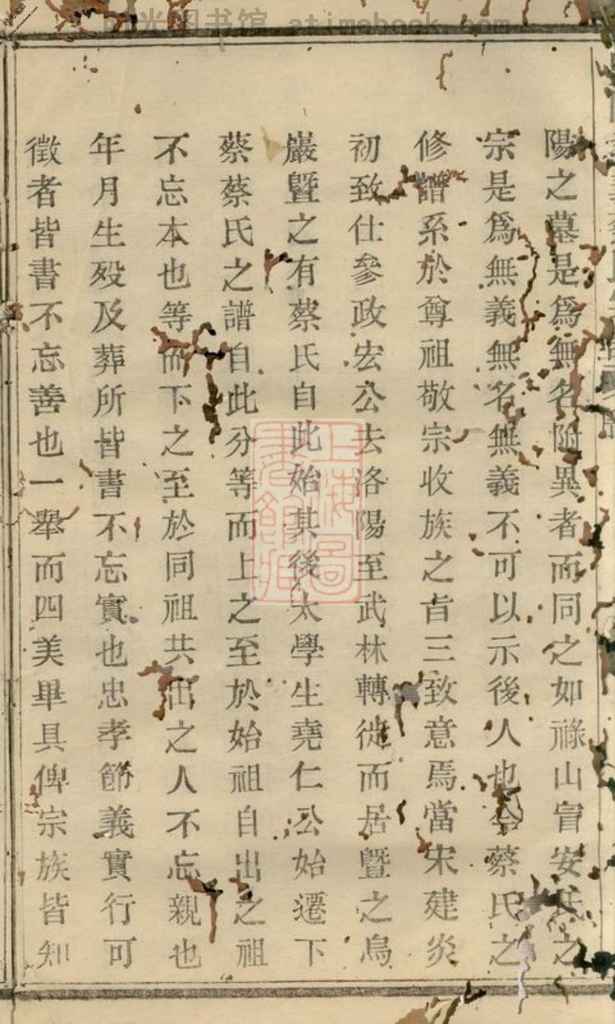 時光图书馆 atimebook.com
陽之墓是爲無名附異者而同之如祿山冒安氏之
宗是爲無義無名無義不可以示後人也今蔡氏之
修譜系於尊祖敬宗收族之旨三致意焉當宋建炎
初致仕參政宏公去洛陽至武林轉徙而居暨之烏
巖暨之有蔡氏自此始其後太學生堯仁公始遷下
蔡蔡氏之譜自此分等而上之至於始祖自出之祖
不忘本也等而下之至於同祖共出之人不忘親也
年月生殁及葬所皆書不忘實也忠孝節義實行可
徵者皆書不忘善也一舉而四美畢具俾宗族皆知